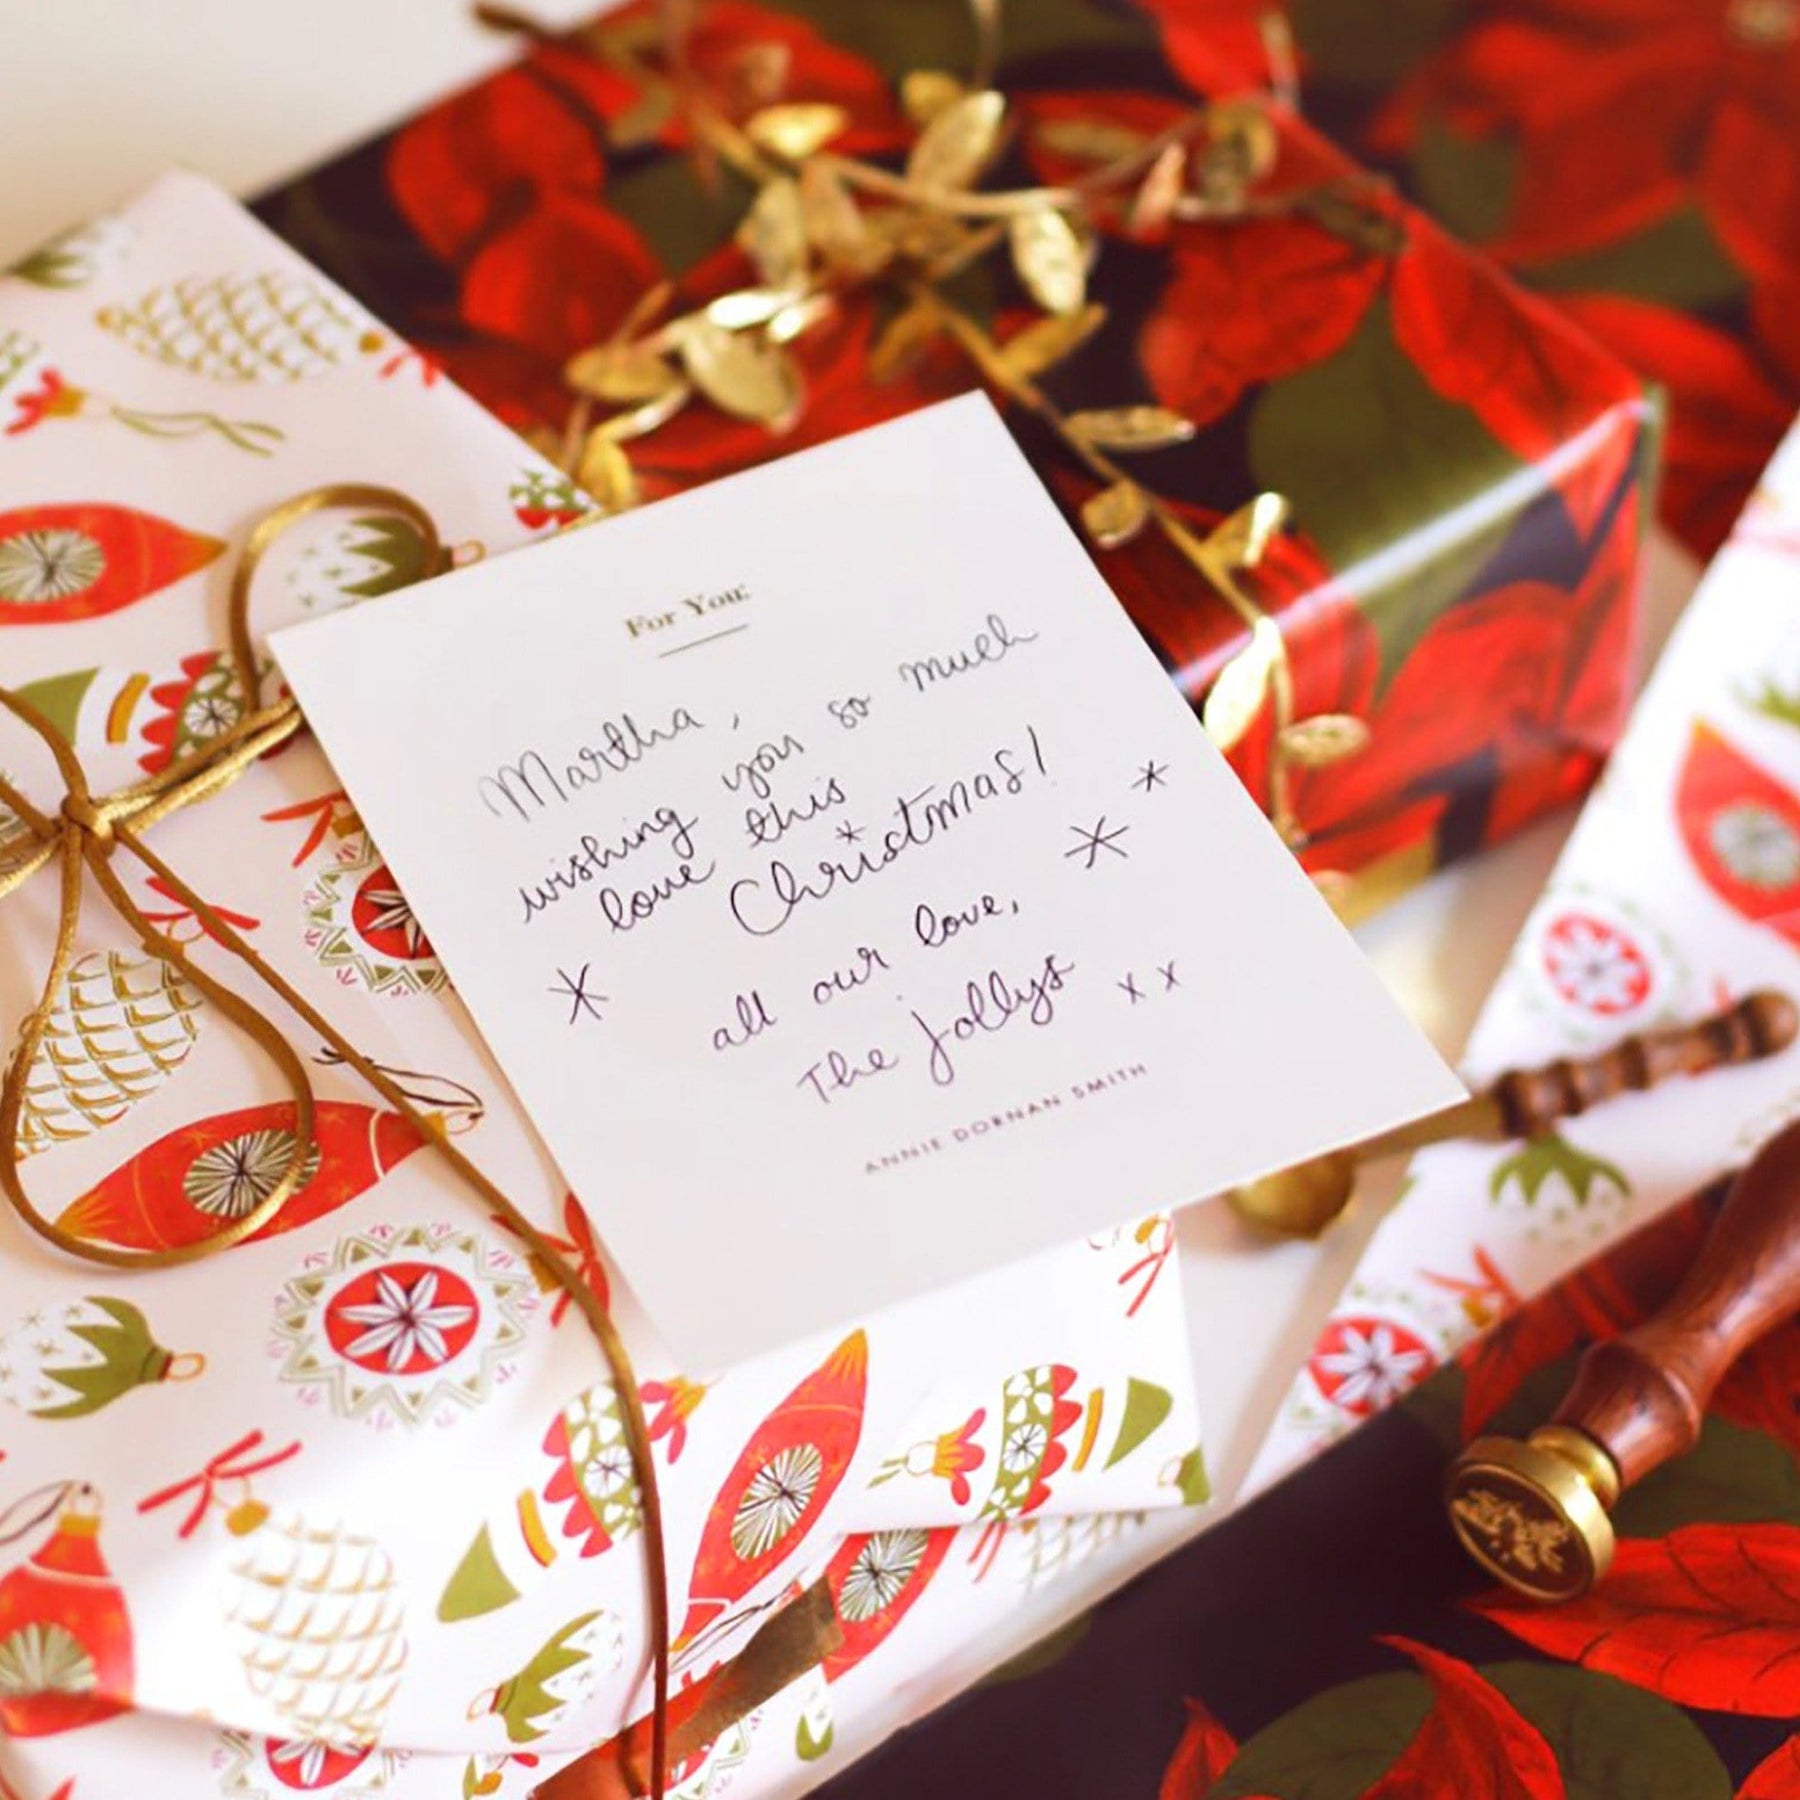 For You:
Martha,
wishing you so much
love this
Christmas!
all our love,
The Jollys x x
ANNIE DORNAN SMITH